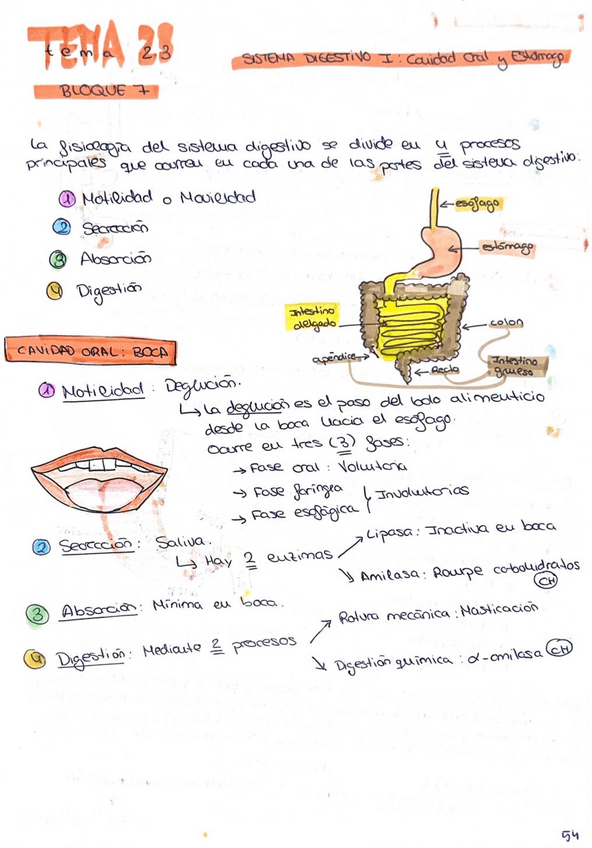 TEMA 23
tema 23
SISTEMA DIGESTIVO I: Cavidad Oral y Estómago
BLOQUE 7
La fisiología del sistema digestivo se divide en 4 procesos
principales que ocurren en cada una de las partes del sistema digestivo:
1 Motilidad o Movilidad
2 Secreción
3 Absorción
4 Digestión
esófago
estómago
Intestino
delgado
colon
apéndice
Recto
Intestino
grueso
CAVIDAD ORAL: BOCA
1 Motilidad: Deglución.
↳ La deglución es el paso del bolo alimenticio
desde la boca hacia el esófago.
Ocurre en tres (3) fases:
→ Fase oral: Voluntaria
→ Fase faríngea
→ Fase esofágica
Involuntarias
2 Secreción: Saliva.
↳ Hay 2 enzimas
Lipasa: Inactiva en boca
Amilasa: Rompe carbohidratos
CH
3 Absorción: Mínima en boca.
4 Digestión: Mediante 2 procesos
Rotura mecánica: Masticación
Digestión química: α-amilasa CH
54